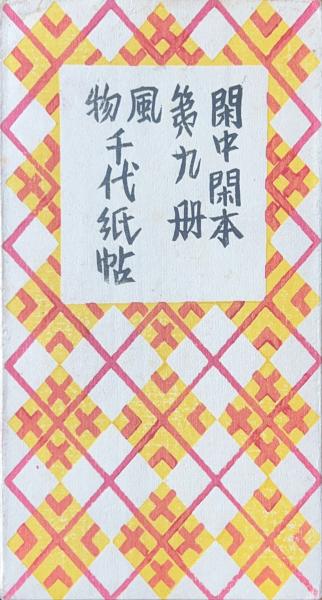 閑中閑本
第九册
風
物千代紙帖